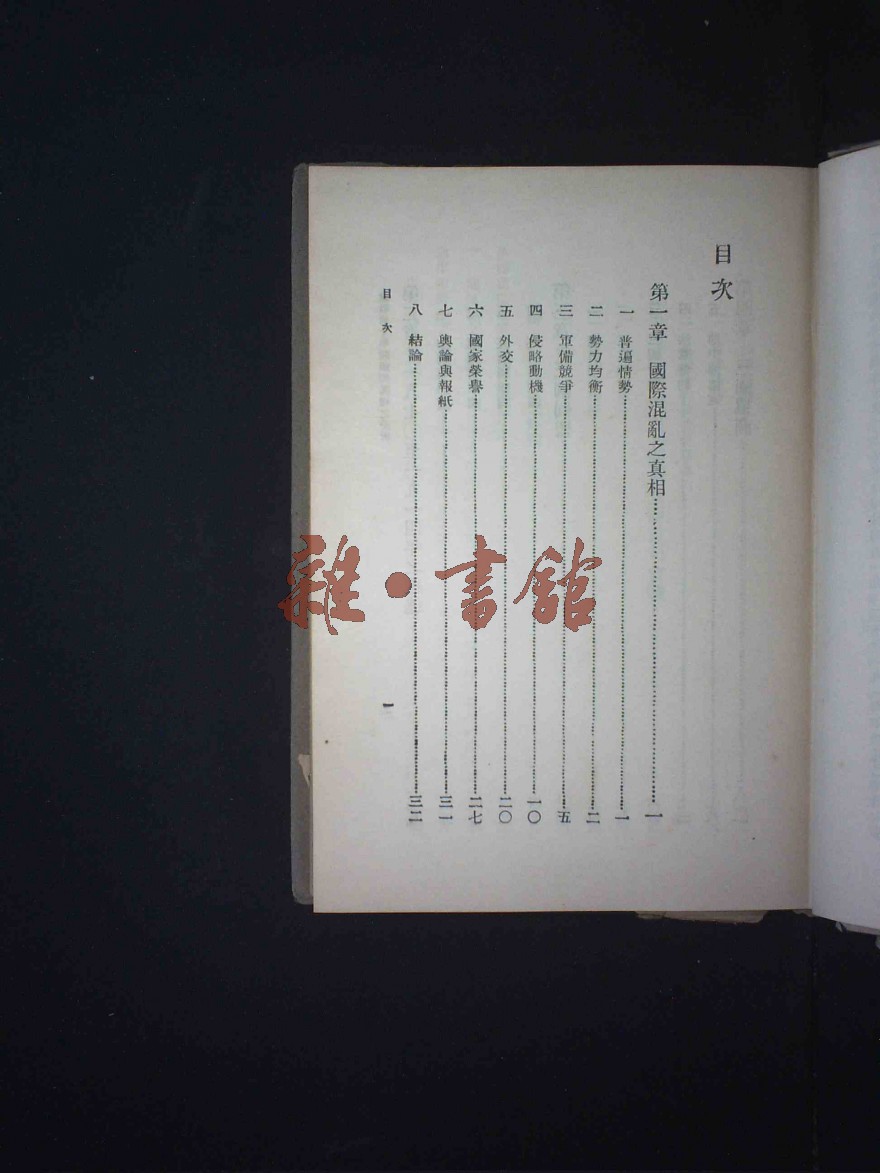 目次
第一章　國際混亂之真相…………一
一　普遍情勢…………一
二　勢力均衡…………二
三　軍備競爭…………五
四　侵略動機…………一〇
五　外交…………二〇
六　國家榮譽…………二七
七　輿論與報紙…………三一
八　結論…………三二
目次
一
雜·書館